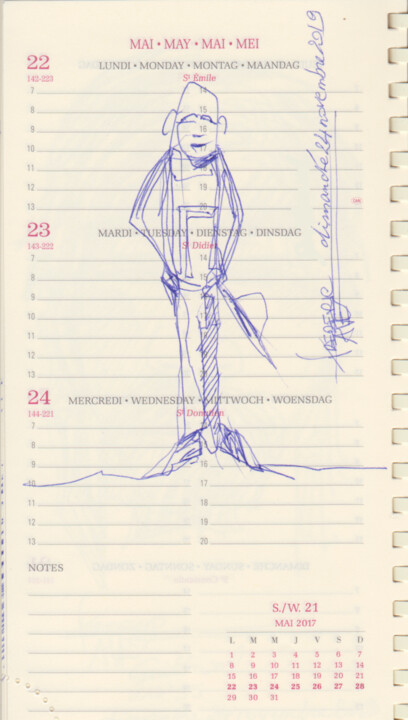 MAI • MAY • MAI • MEI
22 LUNDI • MONDAY • MONTAG • MAANDAG
142-223 St Émile
7 14
8 15
9 16
10 17
11 18
12 19
13 20
23 MARDI • TUESDAY • DIENSTAG • DINSDAG
143-222 St Didier
7 14
8 15
9
10
11
12
13
24 MERCREDI • WEDNESDAY • MITTWOCH • WOENSDAG
144-221 St Donatien
7
8
9 16
10 17
11 18
12 19
13 20
NOTES
S./W. 21
MAI 2017
L M M J V S D
1 2 3 4 5 6 7
8 9 10 11 12 13 14
15 16 17 18 19 20 21
22 23 24 25 26 27 28
29 30 31
dismanche 24 novembre 2019